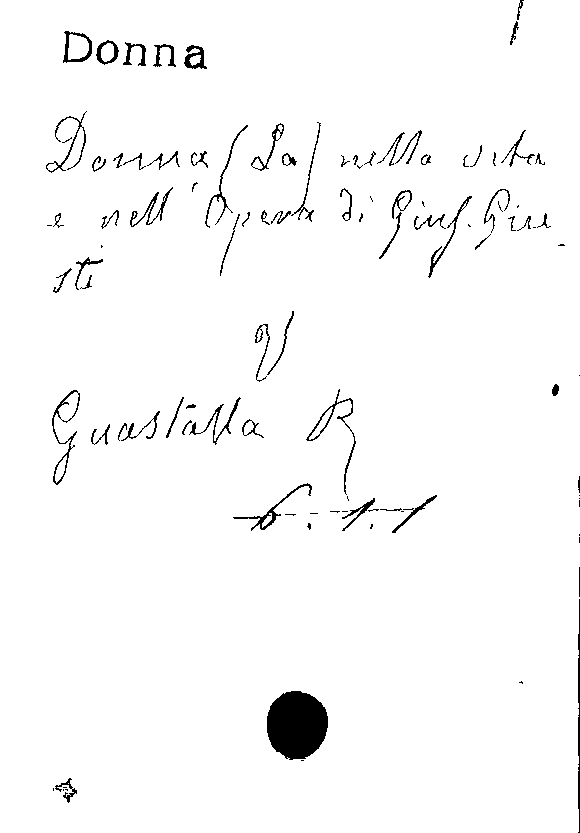 Donna
Donna (La) nella vita
e nell' Opera di Gius. Giu-
sti
V
Guastalla R
6.1.1